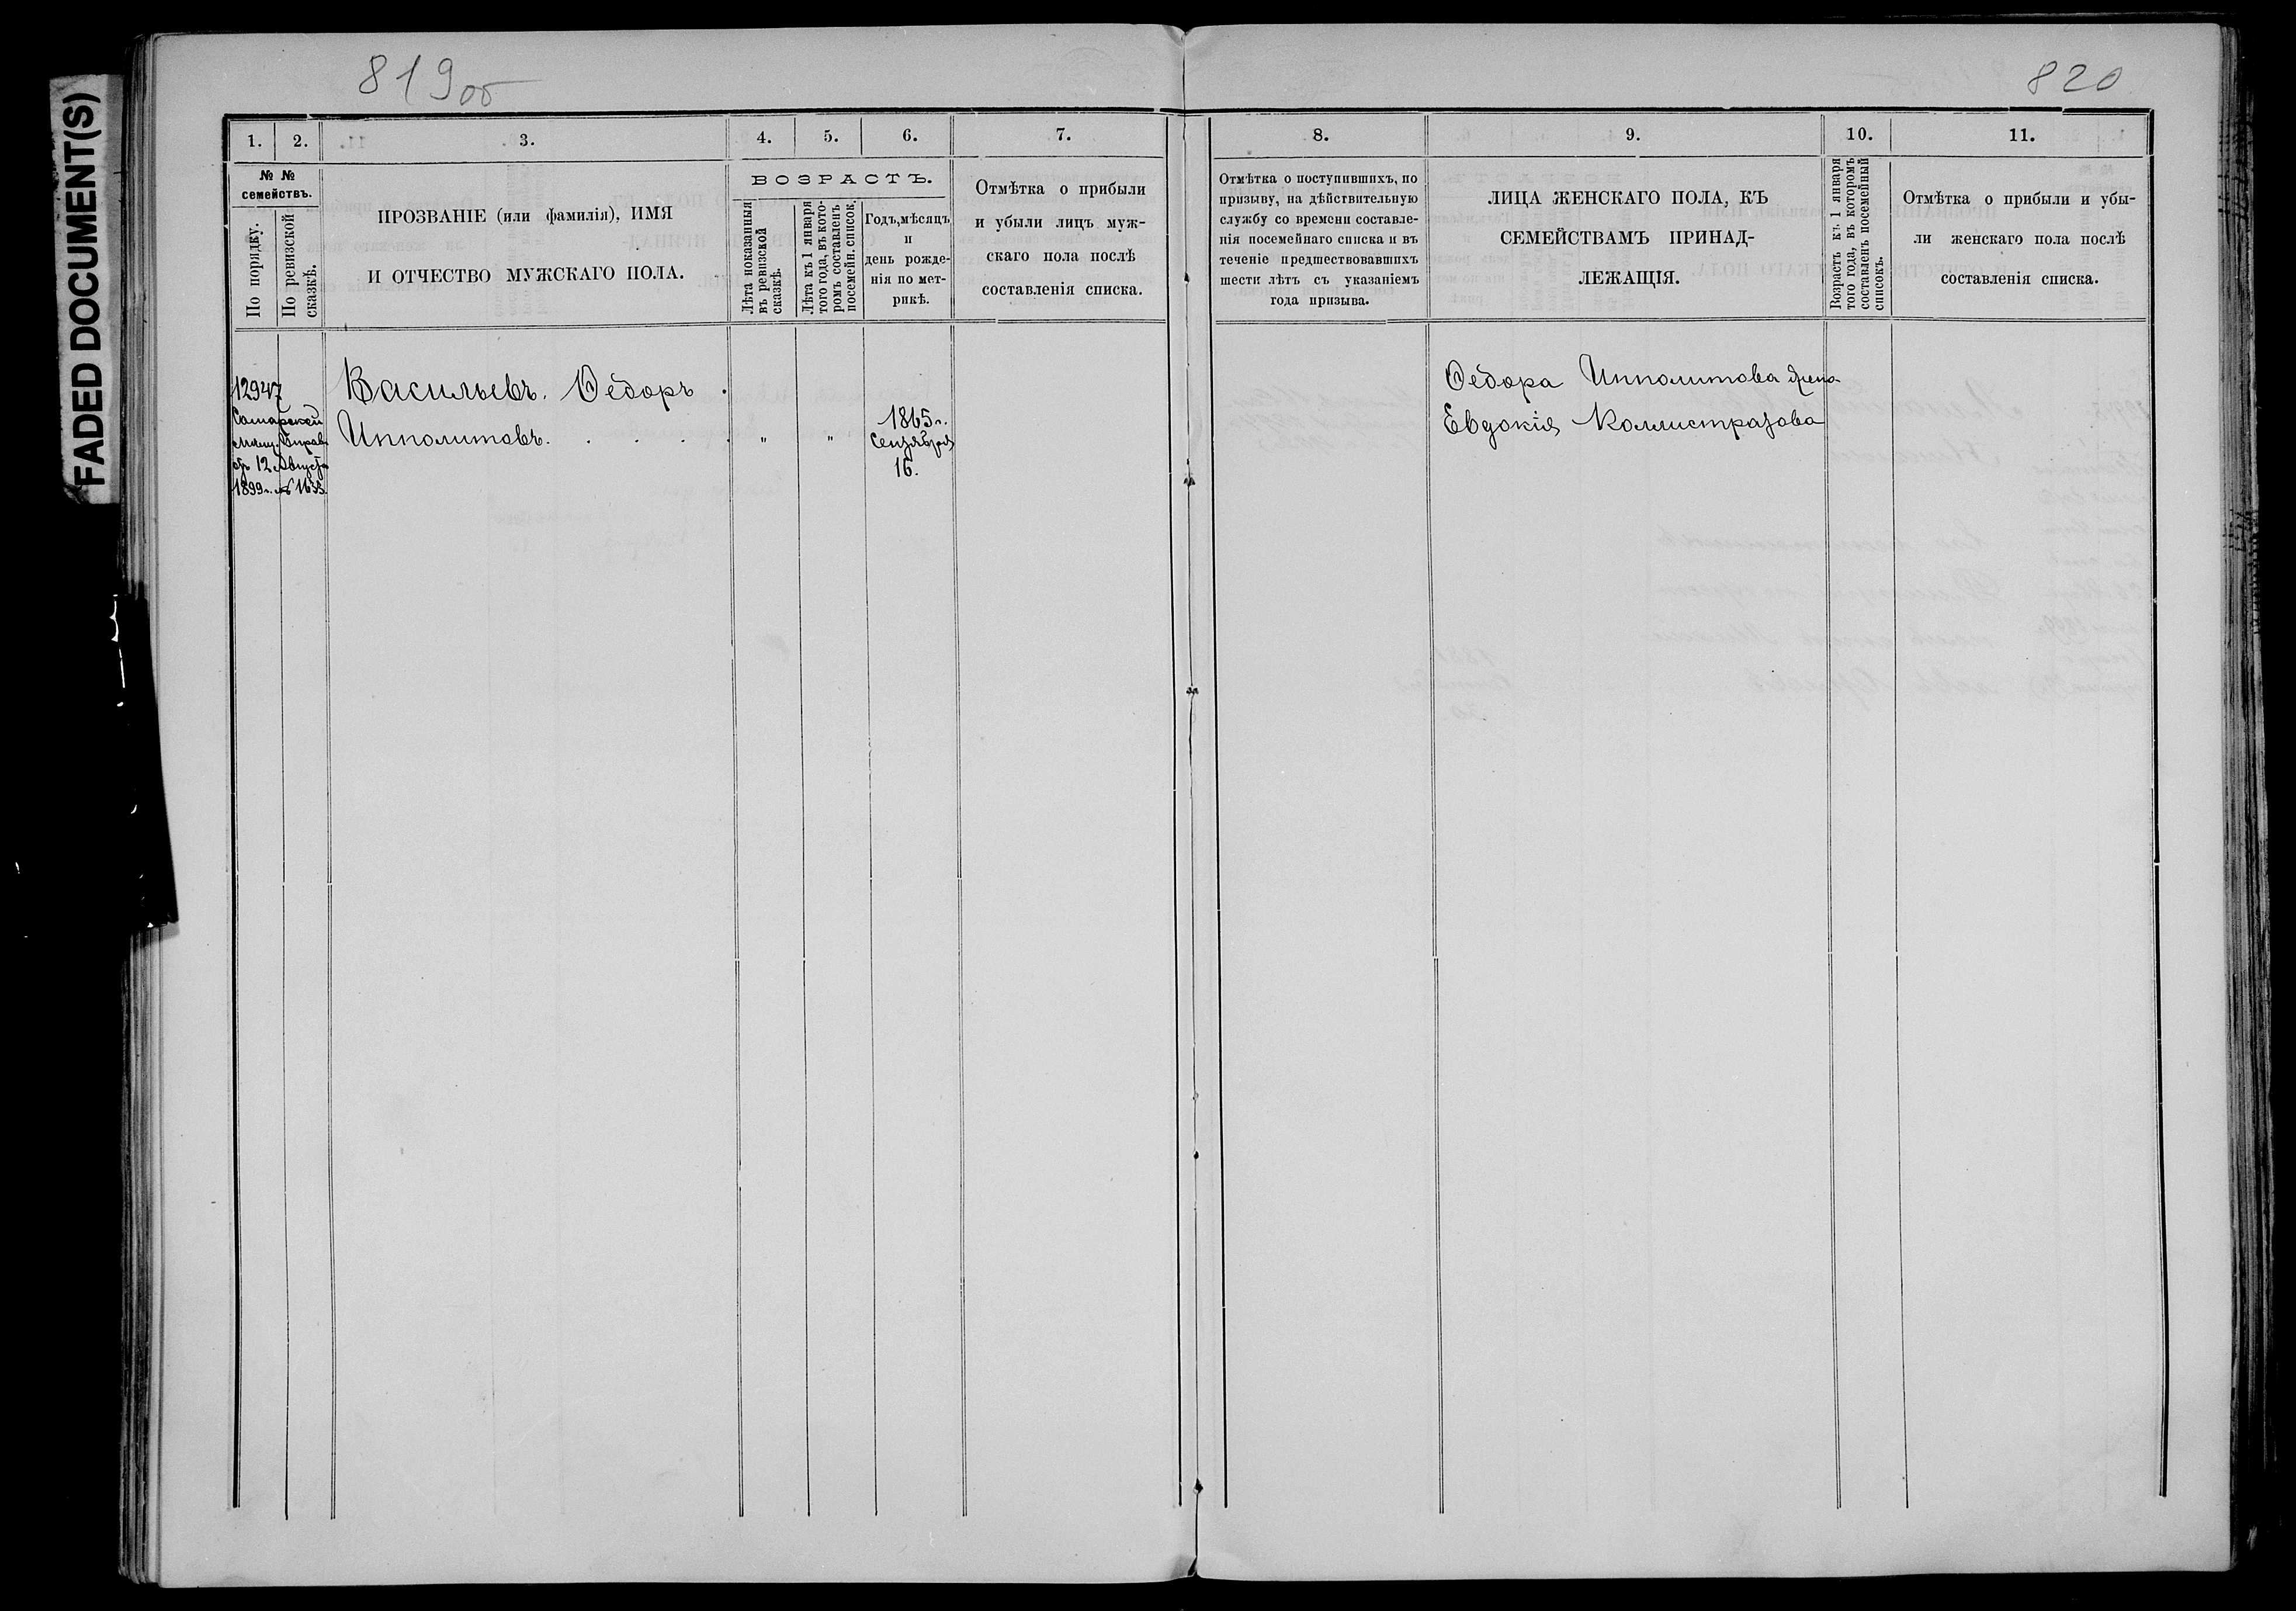 FADED DOCUMENT(S)
819об
820
1.
2.
3.
4.
5.
6.
7.
№ №
семействъ.
По порядку.
По ревизской
сказкѣ.
ПРОЗВАНІЕ (или фамилія), ИМЯ
И ОТЧЕСТВО МУЖСКАГО ПОЛА.
ВОЗРАСТЪ.
Лѣта показанныя
въ ревизской
сказкѣ.
Лѣта къ 1 января
того года, въ кото-
ромъ составленъ
посемейн. список.
Годъ, мѣсяцъ
и
день рожде-
нія по мет-
рикѣ.
Отмѣтка о прибыли
и убыли лицъ муж-
скаго пола послѣ
составленія списка.
12947
Самарской
мѣщ. Управы
отъ 12 Августа
1899г. № 1633
Васильевъ. Ѳедоръ.
Ипполитовъ. . . . .
"
"
1865г.
Сентября
16.
8.
9.
10.
11.
Отмѣтка о поступившихъ, по
призыву, на дѣйствительную
службу со времени составле-
нія посемейнаго списка и въ
теченіе предшествовавшихъ
шести лѣтъ съ указаніемъ
года призыва.
ЛИЦА ЖЕНСКАГО ПОЛА, КЪ
СЕМЕЙСТВАМЪ ПРИНАД-
ЛЕЖАЩІЯ.
Возрастъ къ 1 января
того года, въ которомъ
составленъ посемейный
списокъ.
Отмѣтка о прибыли и убы-
ли женскаго пола послѣ
составленія списка.
Ѳедора Ипполитова жена
Евдокія Коллистратова